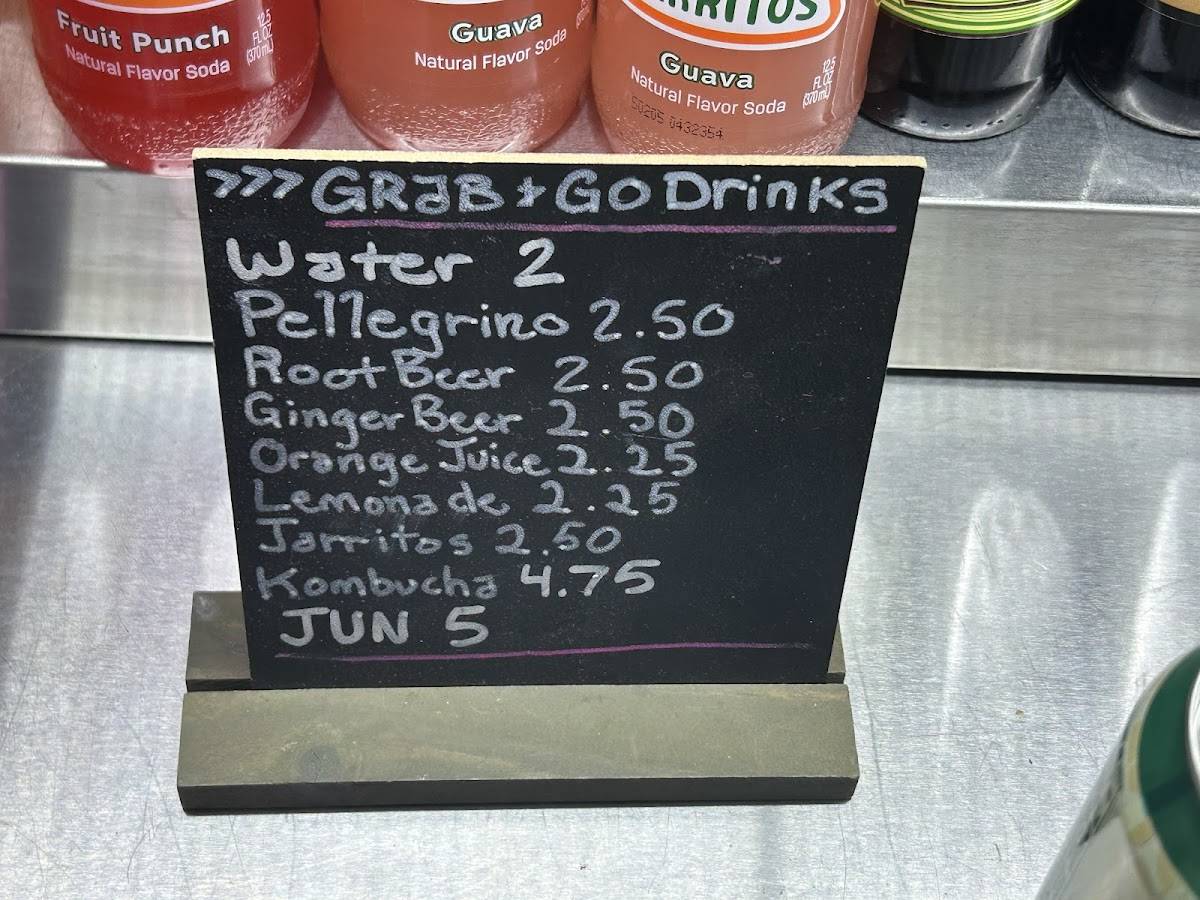 Fruit Punch
Natural Flavor Soda
12.5
FL OZ
(370mL)
Guava
Natural Flavor Soda
Guava
Natural Flavor Soda
12.5
FL OZ
(370mL)
50205 0432354
>>> GRaB + Go Drinks
Water 2
Pellegrino 2.50
Root Beer 2.50
Ginger Beer 2.50
Orange Juice 2.25
Lemonade 2.25
Jarritos 2.50
Kombucha 4.75
JUN 5